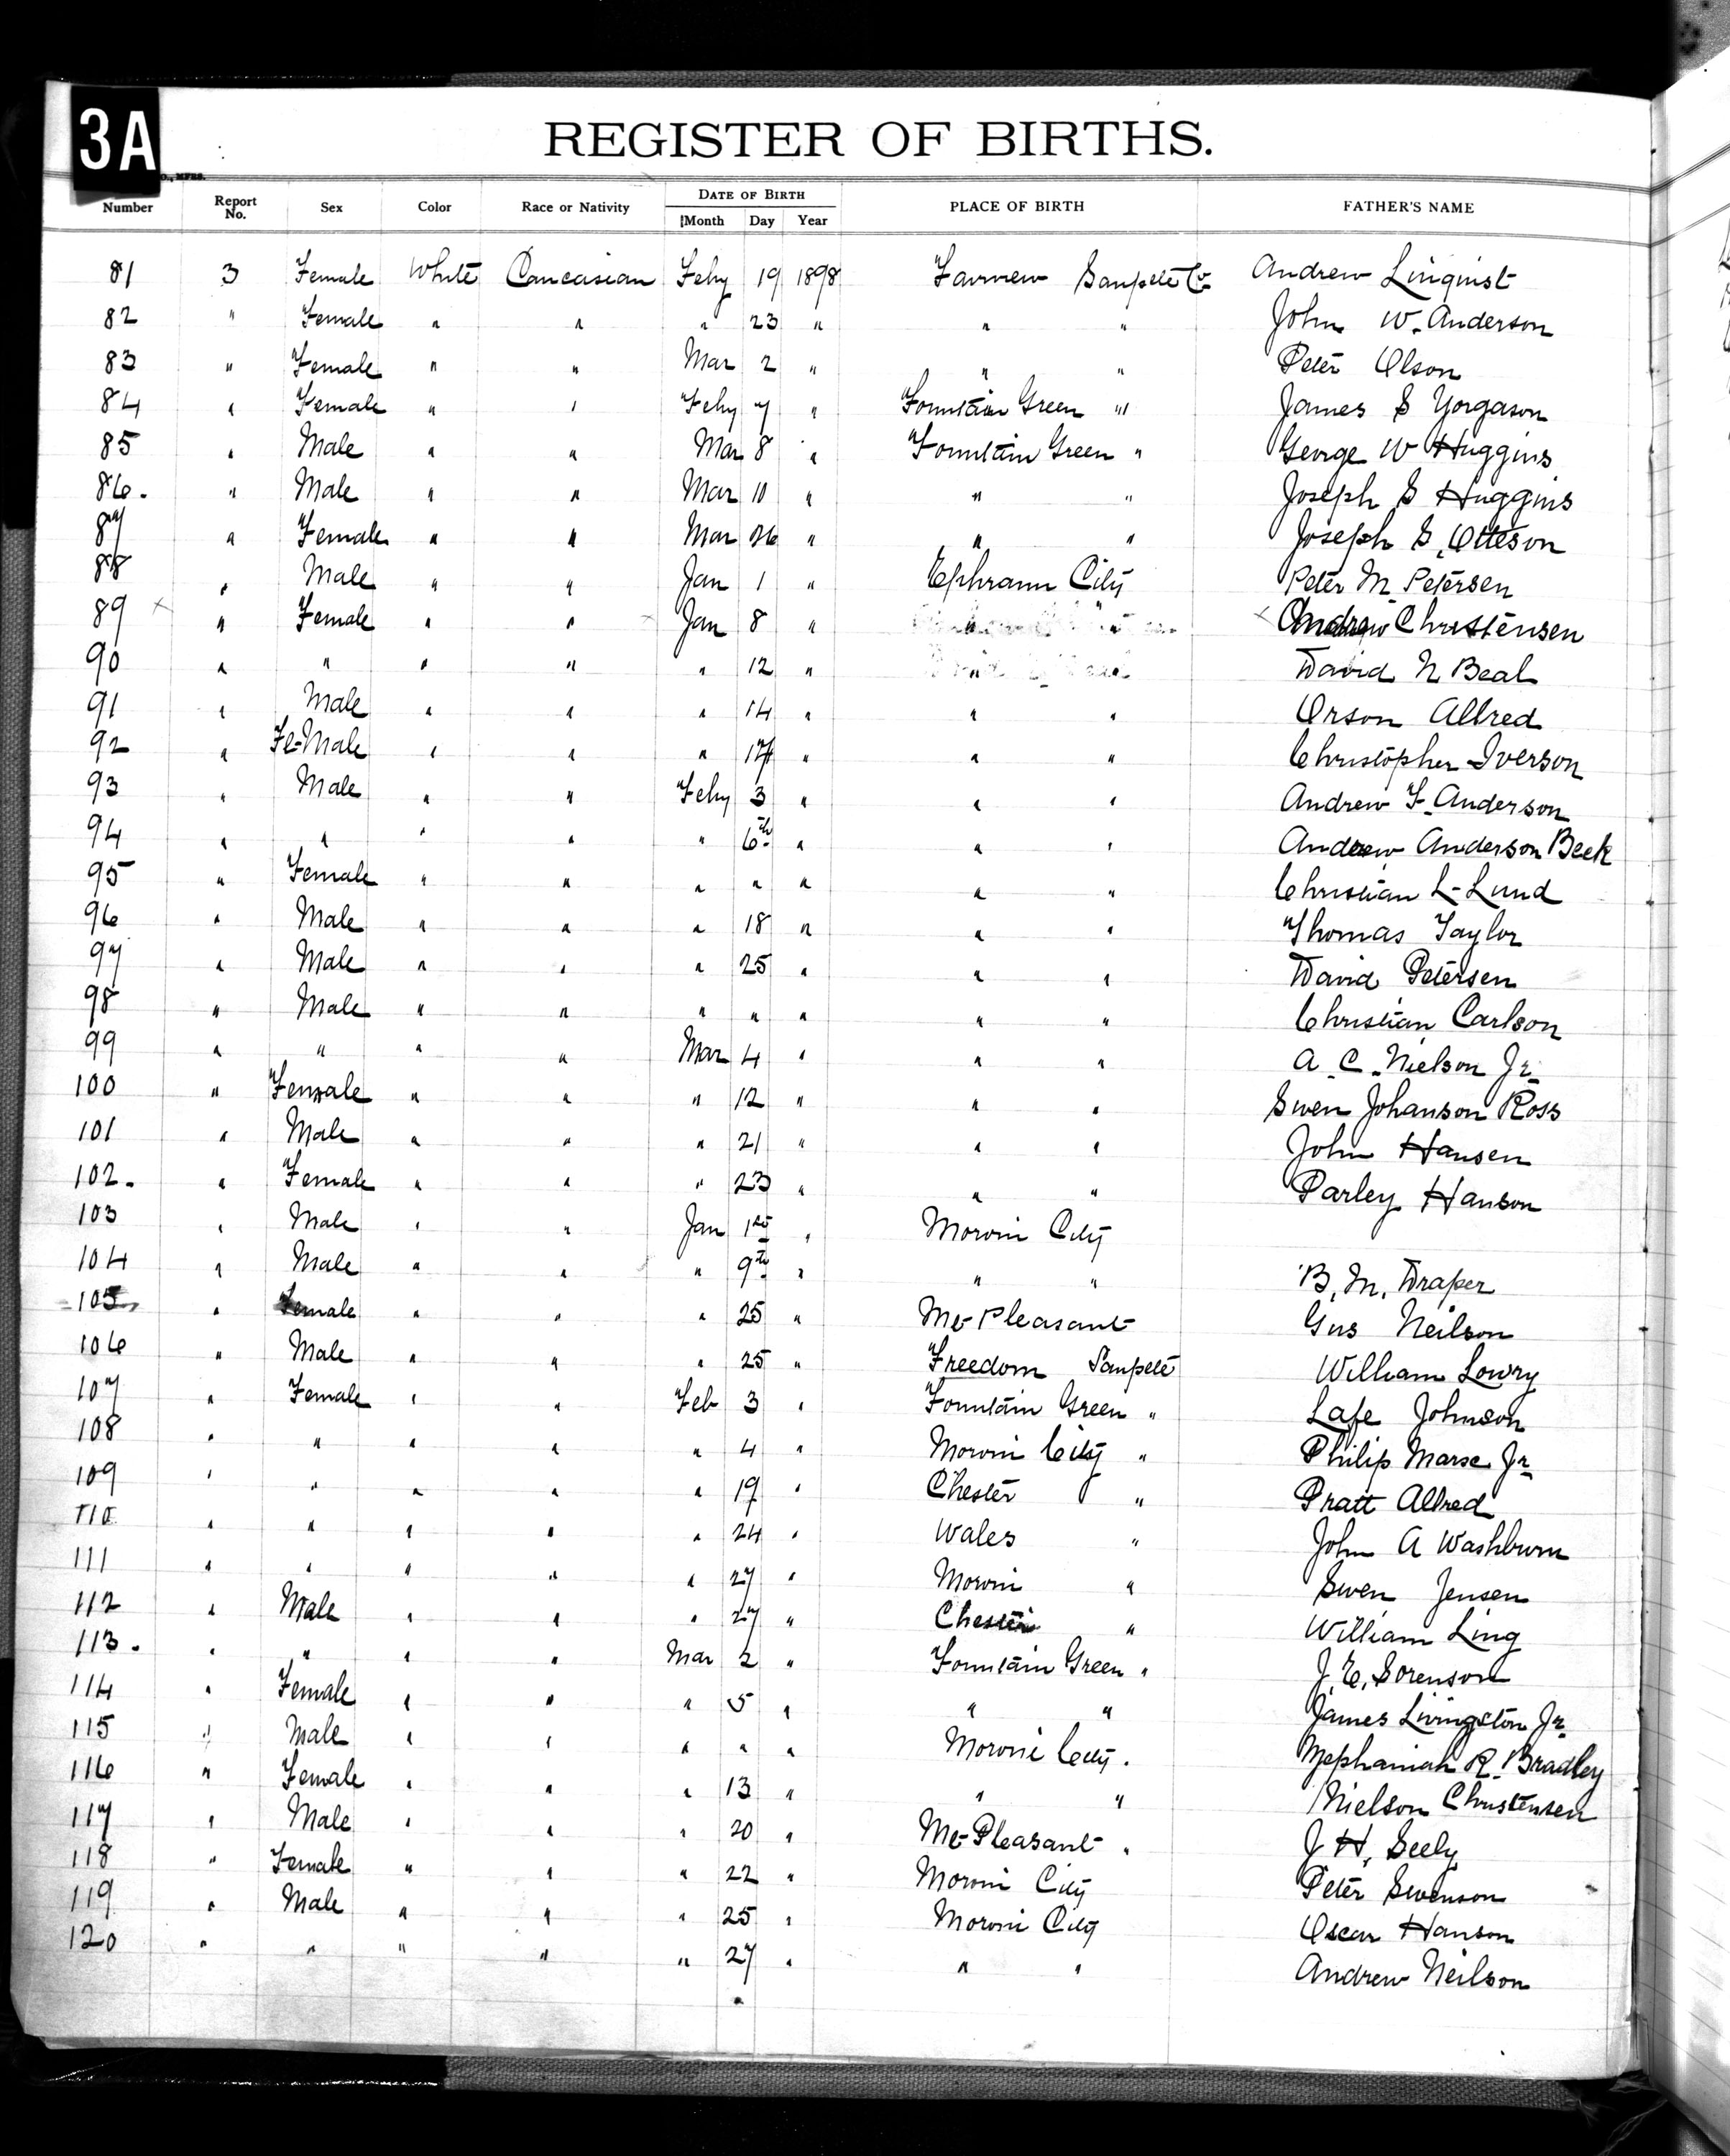 3A
REGISTER OF BIRTHS.
Number Report No. Sex Color Race or Nativity DATE OF BIRTH Month Day Year PLACE OF BIRTH FATHER'S NAME
81 3 Female White Caucasian Feby 19 1898 Fairview Sanpete Co Andrew Linquist
82 " Female " " " 23 " " " John W. Anderson
83 " Female " " Mar 2 " " " Peter Olson
84 " Female " " Feby 7 " Fountain Green " James S Yorgason
85 " Male " " Mar 8 " Fountain Green " George W Huggins
86. " Male " " Mar 10 " " " Joseph S Huggins
87 " Female " " Mar 26 " " " Joseph S. Otteson
88 " Male " " Jan 1 " Ephraim City Peter M. Petersen
89 " Female " " Jan 8 " " " Andrew Christensen
90 " " " " " 12 " " David N Beal
91 " Male " " " 14 " " " Orson Allred
92 " Fe-Male " " " 17 " " " Christopher Iverson
93 " Male " " Feby 3 " " " Andrew F. Anderson
94 " " " " " 6th " " " Andrew Anderson Beck
95 " Female " " " " " " " Christian L-Lund
96 " Male " " " 18 " " " Thomas Taylor
97 " Male " " " 25 " " " David Petersen
98 " Male " " " " " " " Christian Carlson
99 " " " " Mar 4 " " " A. C. Nielson Jr.
100 " Female " " " 12 " " " Swen Johanson Ross
101 " Male " " " 21 " " " John Hansen
102. " Female " " " 23 " " " Parley Hanson
103 " Male " " Jan 1st " Moroni City
104 " Male " " " 9th " " " B. M. Draper
105 " Female " " " 25 " Mt Pleasant Gus Neilson
106 " Male " " " 25 " Freedom Sanpete William Lowry
107 " Female " " Feb 3 " Fountain Green " Lafe Johnson
108 " " " " " 4 " Moroni City " Philip Marse Jr.
109 " " " " " 19 " Chester " Pratt Allred
110 " " " " " 24 " Wales " John A Washburn
111 " " " " " 27 " Moroni " Swen Jensen
112 " Male " " " 27 " Chester " William Ling
113. " " " " Mar 2 " Fountain Green " J. E. Sorenson
114 " Female " " " 5 " " " James Livingston Jr.
115 " Male " " " " " Moroni City. Zephaniah R. Bradley
116 " Female " " " 13 " " " Nielson Christensen
117 " Male " " " 20 " Mt Pleasant " J H. Seely
118 " Female " " " 22 " Moroni City Peter Swenson
119 " Male " " " 25 " Moroni City Oscar Hanson
120 " " " " " 27 " " " Andrew Neilson